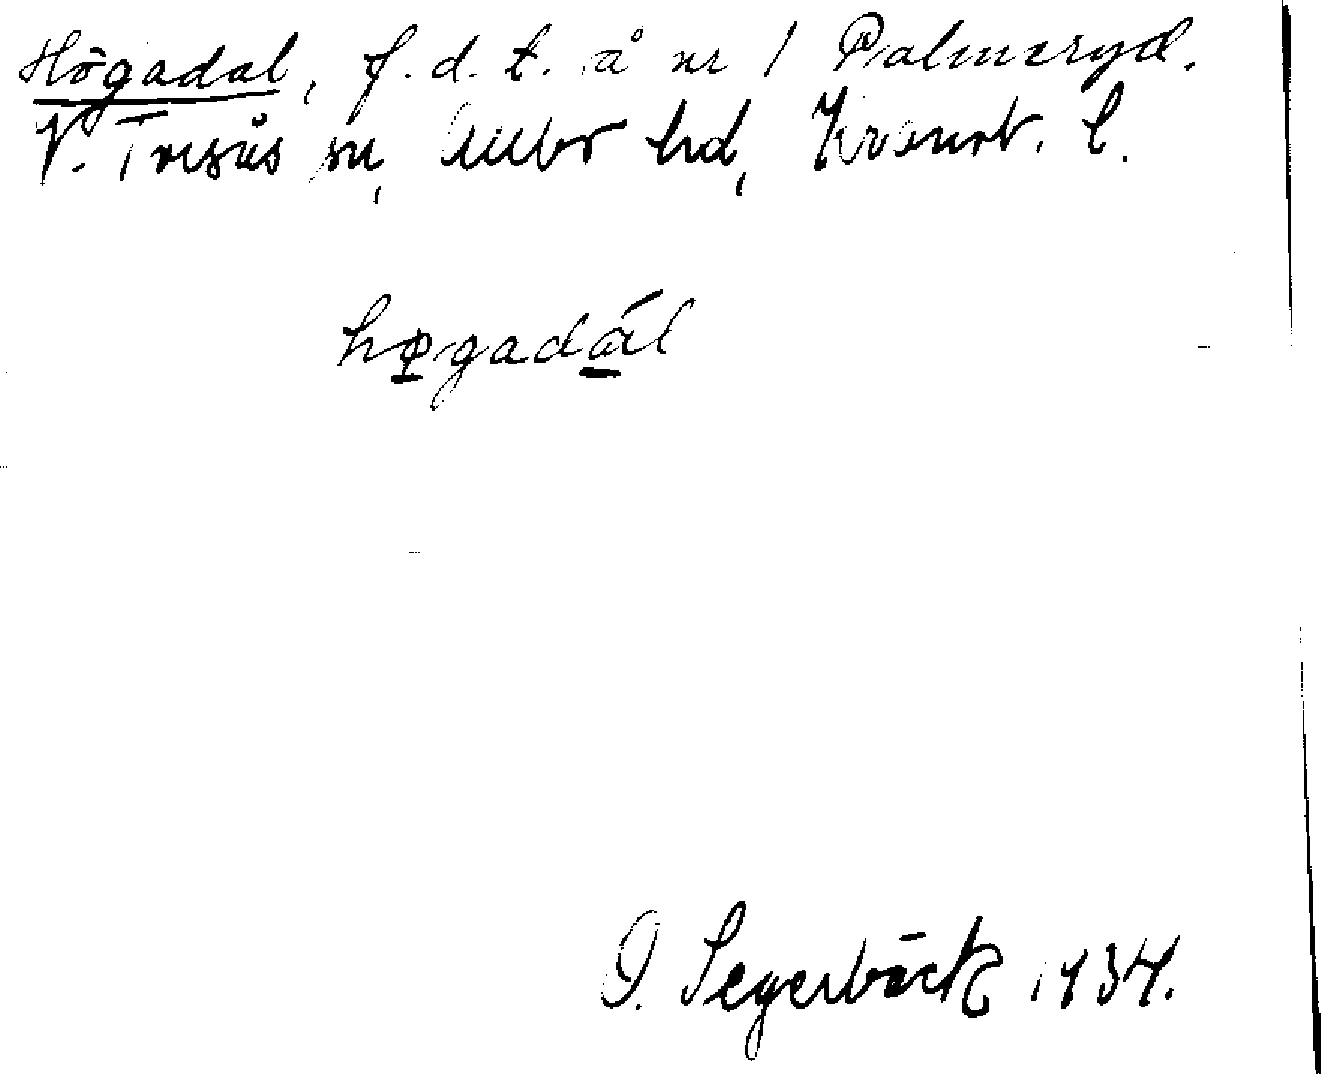 Högadal, f.d.t. å nr 1 Palmeryd.
V. Torsås sn, Allbo hd, Kronob. l.
høgadál
G. Segerbäck 1934.